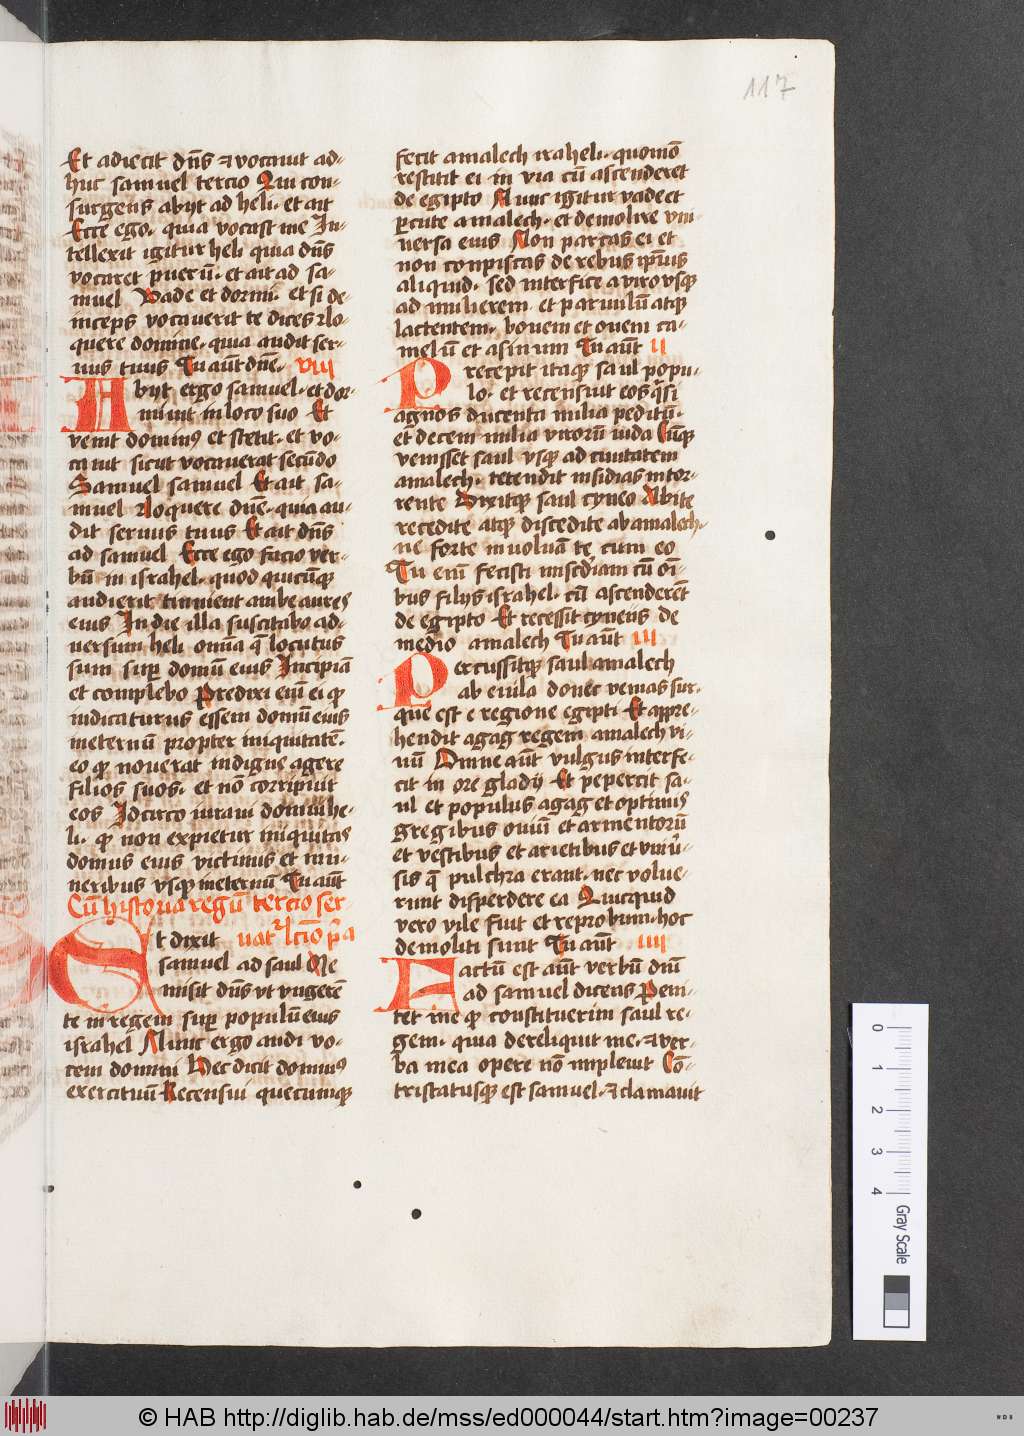 117
Et adiecit dn̄s ⁊ vocauit ad-
huc samuel tercio Qui con-
surgens abyt ad heli· et ait
Ecce ego· quia vocast me In-
tellexit igitur heli quia dn̄s
vocaret puerū· et ait ad sa-
muel Vade et dormi· et si de-
inceps vocauerit te dices Lo-
quere domine· quia audit ser-
uus tuus Tu aūt dn̄e· viii
Abyt ergo samuel· et dor-
miuit in loco suo Et
venit dominꝰ et stetit· et vo-
cauit sicut vocauerat secūdo
Samuel samuel Et ait sa-
muel Loquere dn̄e· quia au-
dit seruus tuus Et ait dn̄s
ad samuel Ecce ego facio ver-
bū in israhel· quod quicūqꝫ
audierit tinnient ambe aures
eius In die illa suscitabo ad-
uersum heli om̄ia q̄ locutus
sum suꝑ domū eius Incipiā
et complebo Predixi eī ei ꝙ
iudicaturus essem domū eius
ineternū propter iniquitatē·
eo ꝙ nouerat indigne agere
filios suos· et nō corripuit
eos Idcirco iuraui domui he-
li· ꝙ non expietur iniquitas
domus eius victimis et mu-
neribus vsqꝫ ineternū Tu aūt
Cū historia regū tercio ser-
uat᷑ lc̄io p̄a
Et dixit
samuel ad saul Me
misit dn̄s vt vngerē
te in regem suꝑ populū eius
israhel Nunc ergo audi vo-
cem domini Hec dicit dominꝰ
exercituū Recensui quecumqꝫ
fecit amalech israheli· quomō
restitit ei in via cū ascenderet
de egipto Nunc igitur vade et
ꝑcute amalech· et demolire vni-
uersa eius Non parcas ei et
non concupiscas de rebus ip̄ius
aliquid· sed interfice a viro vsqꝫ
ad mulierem· et paruulū atqꝫ
lactentem· bouem et ouem ca-
melū et asinum Tu aūt ii
Precepit itaqꝫ saul popu-
lo· et recensuit eos q̄si
agnos ducenta milia peditū·
et decem milia virorū iuda Cūqꝫ
venisset saul vsqꝫ ad ciuitatem
amalech· tetendit insidias in tor-
rente Dixitqꝫ saul cyneo Abite
recedite atqꝫ discedite ab amalech·
ne forte inuoluā te cum eo
Tu eī fecisti miscdiam cū oī-
bus filys israhel· cū ascenderēt
de egipto Et recessit cyneus de
medio amalech Tu aūt iii
Percussitqꝫ saul amalech
ab euila donec venias sur·
que est e regione egipti Et appre-
hendit agag regem amalech vi-
uū Omne aūt vulgus interfe-
cit in ore gladÿ Et pepercit sa-
ul et populus agag et optimis
gregibus ouiū et armentorū
et vestibus et arietibus et vniu̇-
sis q̄ pulchra erant· nec volue-
runt disperdere ea Quicquid
vero vile fuit et reprobum· hoc
demoliti sunt Tu aūt iiii
Factū est aūt verbū dn̄i
ad samuel dicens Peni-
tet me ꝙ constituerim saul re-
gem· quia dereliquit me· ⁊ ver-
ba mea opere nō impleuit Cō-
tristatusqꝫ est samuel· ⁊ clamauit
0 1 2 3 4
Gray Scale
© HAB http://diglib.hab.de/mss/ed000044/start.htm?image=00237